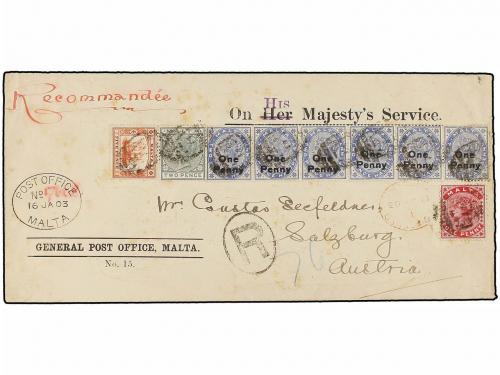 Recommandée
His
On Her Majesty's Service.
One Penny
One Penny
One Penny
One Penny
One Penny
One Penny
TWO PENCE
MALTA
POST OFFICE
No
16 JA 03
MALTA
Mr. Gustav Seefeldner
Salzburg.
Austria
R
GENERAL POST OFFICE, MALTA.
No. 15.